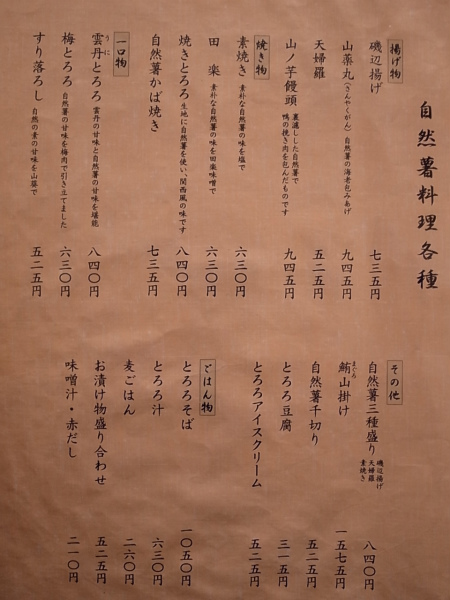 自然薯料理各種
揚げ物
磯辺揚げ 七三五円
山薬丸(さんやくがん) 自然薯の海老包みあげ 九四五円
天婦羅 五二五円
山ノ芋饅頭 裏漉しした自然薯で
鴨の挽き肉を包んだものです 九四五円
焼き物
素焼き 素朴な自然薯の味を塩で 六三〇円
田楽 素朴な自然薯の味を田楽味噌で 六三〇円
焼きとろろ 生地に自然薯を使い、関西風の味です 八四〇円
自然薯かば焼き 七三五円
一口物
雲丹とろろ 雲丹の甘味と自然薯の甘味を堪能 八四〇円
うに
梅とろろ 自然薯の甘味を梅肉で引き立てました 六三〇円
すり落ろし 自然の素の甘味を山葵で 五二五円
その他
自然薯三種盛り 磯辺揚げ
天婦羅
素焼き 八四〇円
鮪山掛け 一五七五円
まぐろ
自然薯千切り 五二五円
とろろ豆腐 三一五円
とろろアイスクリーム 五二五円
ごはん物
とろろそば 一〇五〇円
とろろ汁 六三〇円
麦ごはん 二六〇円
お漬け物盛り合わせ 五二五円
味噌汁・赤だし 二一〇円